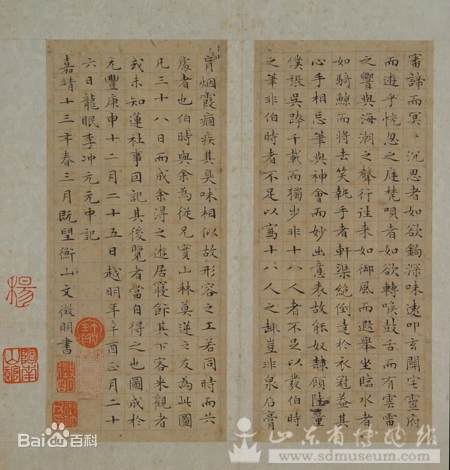 審諦而冥、沉思者如欲鈎深味遠叩玄關宅靈府
而遊乎恍忽之庭梵唄者如欲轉喉鼓舌而有雲雷
之響與海潮之聲行往來如御風而遐舉坐臨水者
如騎鯨而將去笑執手者軒渠絕倒達於衣冠蓋其
心手相忘筆與神會而妙出意表故能奴隸顧陸童
僕張吳跨千載而獨步非十八人者不足以發伯時
之筆非伯時者不足以寫十八人之趣豈非泉石膏
肓烟霞痼疾其臭味相似故形容之工若同時而共
處者也伯時與余為從兄實山林莫逆之友為此圖
凡三十八日而成余得之遊居寢飯其下客來觀者
或未知蓮社事因記其後覽者當自得之也圖成於
元豐庚申十二月二十五日越明年辛酉正月二十
六日龍眠李冲元元申記
嘉靖十三年春三月既望衡山文徵明書
楊
Bai百科
山东省博物馆
www.sdmuseum.com